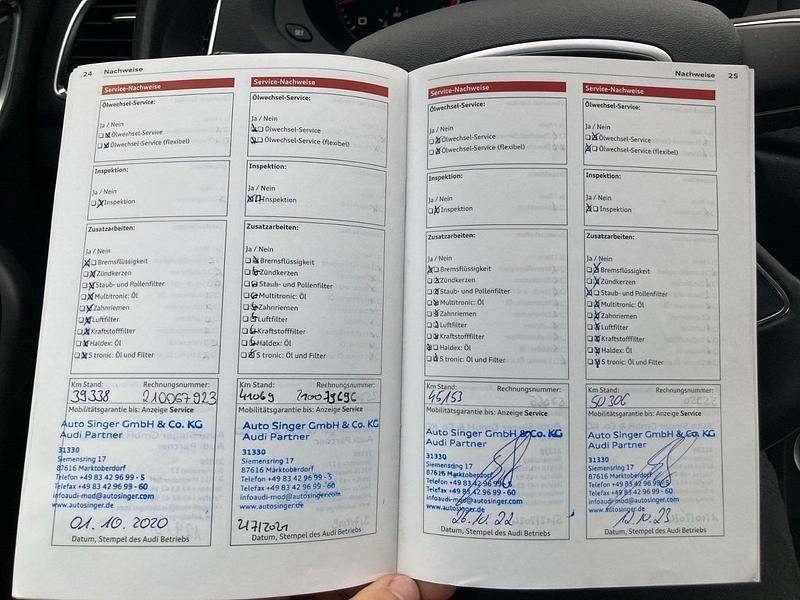 24 Nachweise
Service-Nachweise
Ölwechsel-Service:
Ja / Nein
Ölwechsel-Service
Ölwechsel-Service (flexibel)
Inspektion:
Ja / Nein
Inspektion
Zusatzarbeiten:
Ja / Nein
Bremsflüssigkeit
Zündkerzen
Staub- und Pollenfilter
Multitronic: Öl
Zahnriemen
Luftfilter
Kraftstofffilter
Haldex: Öl
S tronic: Öl und Filter
Km Stand: Rechnungsnummer:
39338 210067923
Mobilitätsgarantie bis: Anzeige Service
Auto Singer GmbH & Co. KG
Audi Partner
31330
Siemensring 17
87616 Marktoberdorf
Telefon +49 83 42 96 99 - 5
Telefax +49 83 42 96 99 - 60
infoaudi-mod@autosinger.com
www.autosinger.de
01.10.2020
Datum, Stempel des Audi Betriebs
Service-Nachweise
Ölwechsel-Service:
Ja / Nein
Ölwechsel-Service
Ölwechsel-Service (flexibel)
Inspektion:
Ja / Nein
Inspektion
Zusatzarbeiten:
Ja / Nein
Bremsflüssigkeit
Zündkerzen
Staub- und Pollenfilter
Multitronic: Öl
Zahnriemen
Luftfilter
Kraftstofffilter
Haldex: Öl
S tronic: Öl und Filter
Km Stand: Rechnungsnummer:
41069 210079696
Mobilitätsgarantie bis: Anzeige Service
Auto Singer GmbH & Co. KG
Audi Partner
31330
Siemensring 17
87616 Marktoberdorf
Telefon +49 83 42 96 99 - 5
Telefax +49 83 42 96 99 - 60
infoaudi-mod@autosinger.com
www.autosinger.de
21/7/2021
Datum, Stempel des Audi Betriebs
Nachweise 25
Service-Nachweise
Ölwechsel-Service:
Ja / Nein
Ölwechsel-Service
Ölwechsel-Service (flexibel)
Inspektion:
Ja / Nein
Inspektion
Zusatzarbeiten:
Ja / Nein
Bremsflüssigkeit
Zündkerzen
Staub- und Pollenfilter
Multitronic: Öl
Zahnriemen
Luftfilter
Kraftstofffilter
Haldex: Öl
S tronic: Öl und Filter
Km Stand: Rechnungsnummer:
45153
Mobilitätsgarantie bis: Anzeige Service
Auto Singer GmbH & Co. KG
Audi Partner
31330
Siemensring 17
87616 Marktoberdorf
Telefon +49 83 42 96 99 - 5
Telefax +49 83 42 96 99 - 60
infoaudi-mod@autosinger.com
www.autosinger.de
26.10.22
Datum, Stempel des Audi Betriebs
Service-Nachweise
Ölwechsel-Service:
Ja / Nein
Ölwechsel-Service
Ölwechsel-Service (flexibel)
Inspektion:
Ja / Nein
Inspektion
Zusatzarbeiten:
Ja / Nein
Bremsflüssigkeit
Zündkerzen
Staub- und Pollenfilter
Multitronic: Öl
Zahnriemen
Luftfilter
Kraftstofffilter
Haldex: Öl
S tronic: Öl und Filter
Km Stand: Rechnungsnummer:
50306
Mobilitätsgarantie bis: Anzeige Service
Auto Singer GmbH & Co. KG
Audi Partner
31330
Siemensring 17
87616 Marktoberdorf
Telefon +49 83 42 96 99 - 5
Telefax +49 83 42 96 99 - 60
infoaudi-mod@autosinger.com
www.autosinger.de
12.10.23
Datum, Stempel des Audi Betriebs
SET